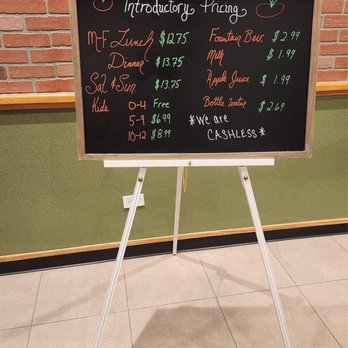 Introductory Pricing
M-F Lunch $12.75
Dinner $13.75
Sat & Sun $13.75
Kids 0-4 Free
5-9 $6.99
10-12 $8.99
Fountain Bev. $2.99
Milk $1.99
Apple Juice $1.99
Bottle Water $2.69
*We are
CASHLESS*